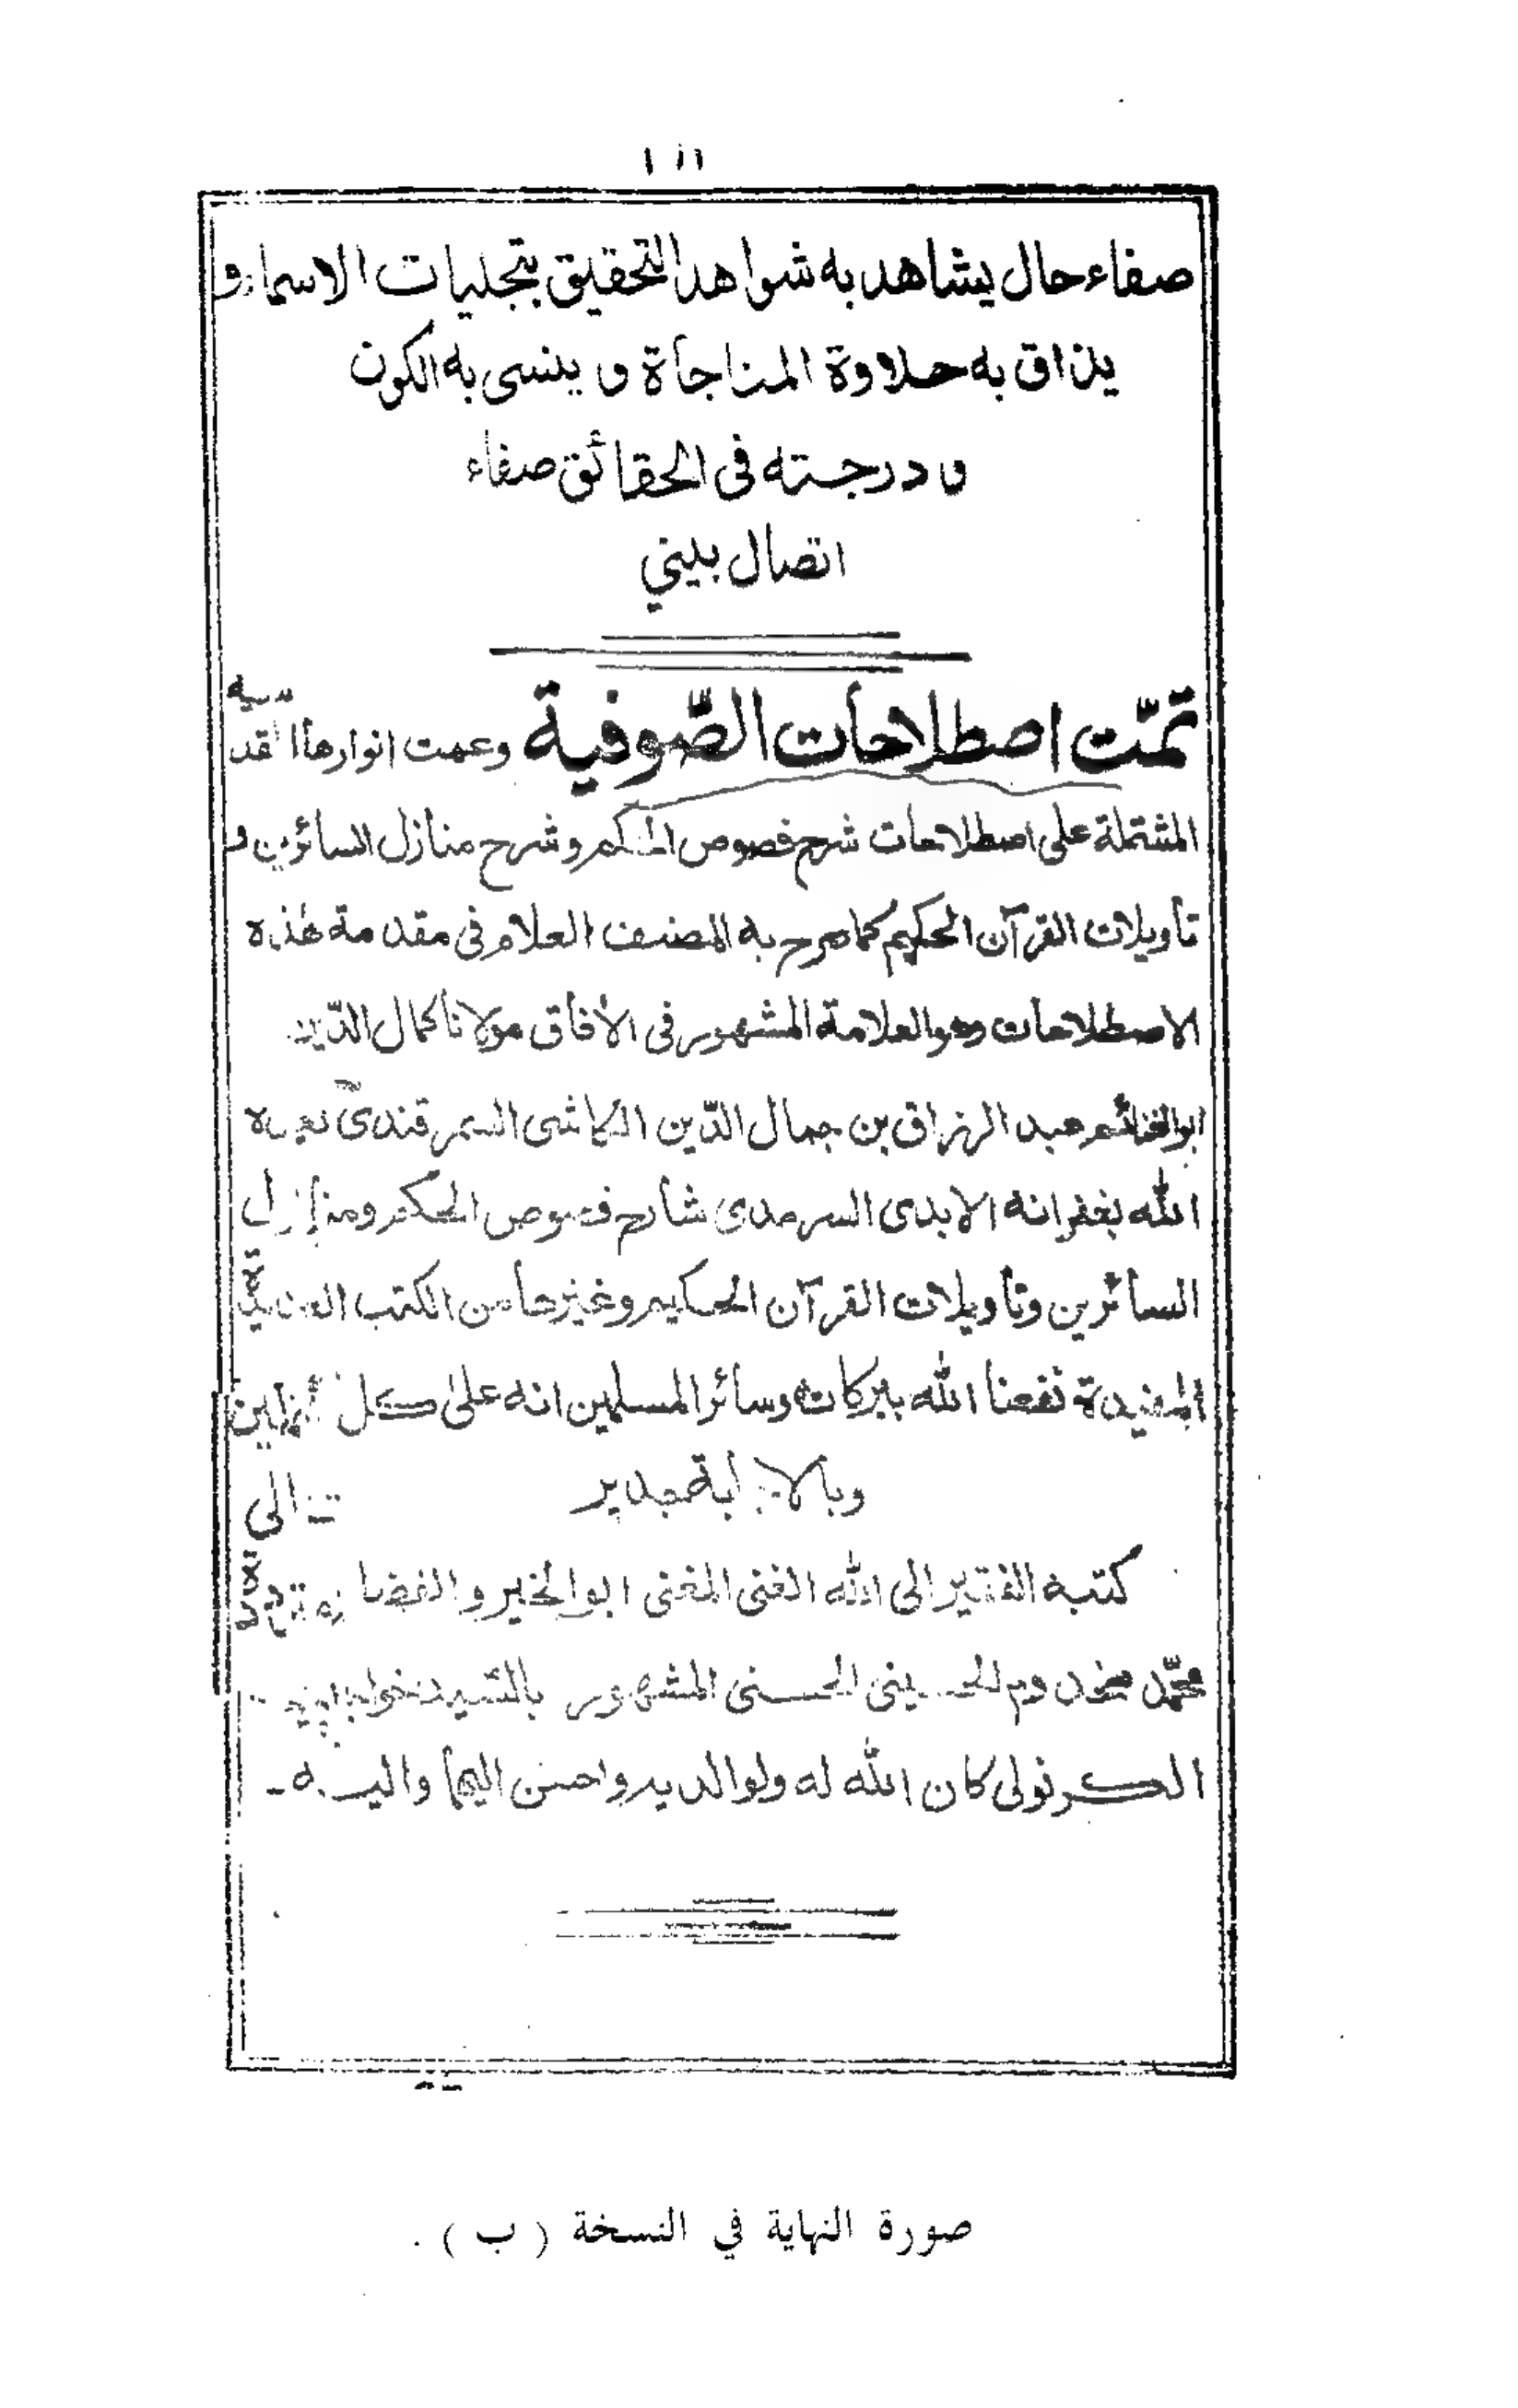 صفاء حال يشاهد به شواهد التحقيق بتجليات الاسماء و
يذاق به حلاوة المناجاة و ينسى به الكون
و درجته فى الحقائق صفاء
اتصال بيني
تمّت اصطلاحات الصّوفية وعمت انوارها القدسيه
المشتملة على اصطلاحات شرح فصوص الحكم وشرح منازل السائرين و
تأويلات القرآن الحكيم كما صرح به المصنف العلام فى مقدمة هٰذه
الاصطلاحات وهو العلامة المشهور فى الأفاق مولانا كمال الدّين
ابو الغنائم عبد الرزاق بن جمال الدّين الكاشى السمرقندىّ
الله بغفرانه الابدى السرمدى شارح فصوص الحكم ومنازل
السائرين وتأويلات القرآن الحكيم وغيرها من الكتب
المفيدة نفعنا الله ببركاته وسائر المسلمين انه على كل
وبالاجابة جدير
كتبه الفقير الى الله الغنى المغنى ابو الخير والفضل
محمّد مخدوم الحسينى الحسنى المشهور بالسّيد خواجه
الكرنولى كان الله له ولوالديه واحسن اليهما واليه
صورة النهاية في النسخة ( ب ) .